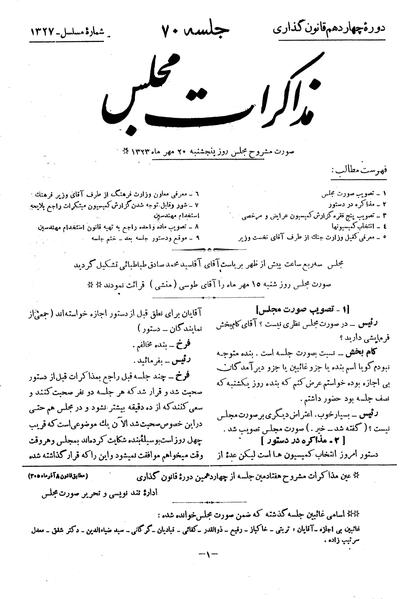 دورهٔ چهاردهم قانون گذاری
جلسه ۷۰
شمارهٔ مسلسل - ۱۳۲۷
مذاکرات مجلس
صورت مشروح مجلس روز پنجشنبه ۲۰ مهر ماه ۱۳۲۳ *
فهرست مطالب:
۱ - تصویب صورت مجلس
۲ - مذاکره در دستور
۳ - تصویب پنج فقره گزارش کمیسیون عرایض و مرخصی
۴ - انتخاب کمیسیونها
۵ - معرفی کفیل وزارت جنگ از طرف آقای نخست وزیر
۶ - معرفی معاون وزارت فرهنگ از طرف آقای وزیر فرهنگ
۷ - شور و قابل توجه شدن گزارش کمیسیون مبتکرات راجع بلایحه
استخدام مهندسین
۸ - تصویب ماده واحده راجع به تهیه قانون استخدام مهندسین
۹ - موقع و دستور جلسه بعد - ختم جلسه
مجلس سه ربع ساعت پیش از ظهر بریاست آقای آقا سید محمد صادق طباطبائی تشکیل گردید
صورت مجلس روز شنبه ۱۵ مهر ماه را آقای طوسی (منشی) قرائت نمودند *
[۱ - تصویب صورت مجلس]
رئیس - در صورت مجلس نظری نیست؟ آقای کام بخش
فرمایشی دارید؟
کام بخش - نسبت بصورت جلسه است. بنده متوجه
نبودم گویا اسم بنده یا جزو غائبین یا جزو دیر آمدگان
بی اجازه بوده خواستم عرض کنم که بنده روز یکشنبه که
نصف جلسه بود حضور داشتم.
رئیس - بسیار خوب. اعتراض دیگری بر صورت مجلس
نیست؟ (گفته شد - خیر.) صورت مجلس تصویب شد.
[۲ - مذاکره در دستور]
دستور امروز انتخاب کمیسیون ها است لیکن عدهٔ از
آقایان برای نطق قبل از دستور اجازه خواسته اند (جمعی از
نمایندگان - دستور)
فرخ - بنده مخالفم.
رئیس - بفرمائید.
فرخ - چند جلسه قبل راجع بمذاکرات قبل از دستور
صحبت شد و قرار شد که هر جلسه دو نفر صحبت کنند و
سعی کنند که از ده دقیقه بیشتر نشود و در مجلس هم حتی
در این خصوص صحبت شد الآن یک موضوعی است که قریب
چهل روز است بوسیله بنده شکایت کرده اند بمجلس و هر وقت
وقت میخواهم موافقت نمیشود و این را که قرار گذاشته شده
* عین مذاکرات مشروح هفتادمین جلسه از چهاردهمین دورهٔ قانون گذاری
(مطابق قانون ۸ آذر ماه ۳۰۵)
ادارهٔ تند نویسی و تحریر صورت مجلس
* اسامی غائبین جلسه گذشته که ضمن صورت مجلس خوانده شده:
غائبین بی اجازه - آقایان: تربتی - خاکباز - رفیع - ذوالقدر - کفائی - قبادیان - گرگانی - سید ضیاءالدین - دکتر شفق - معدل
- ۱ -